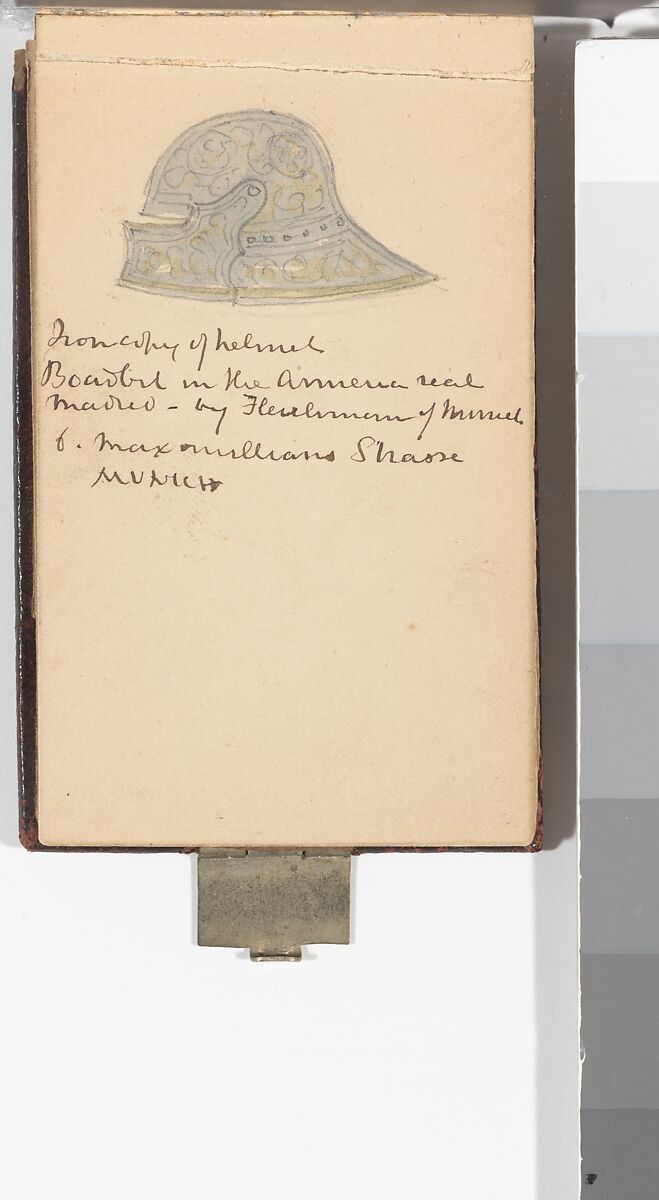 Iron copy of helmet
Boadbil in the Armeria real
Madrid - by of Munich
6. Maxomillians Strasse
MUNICH